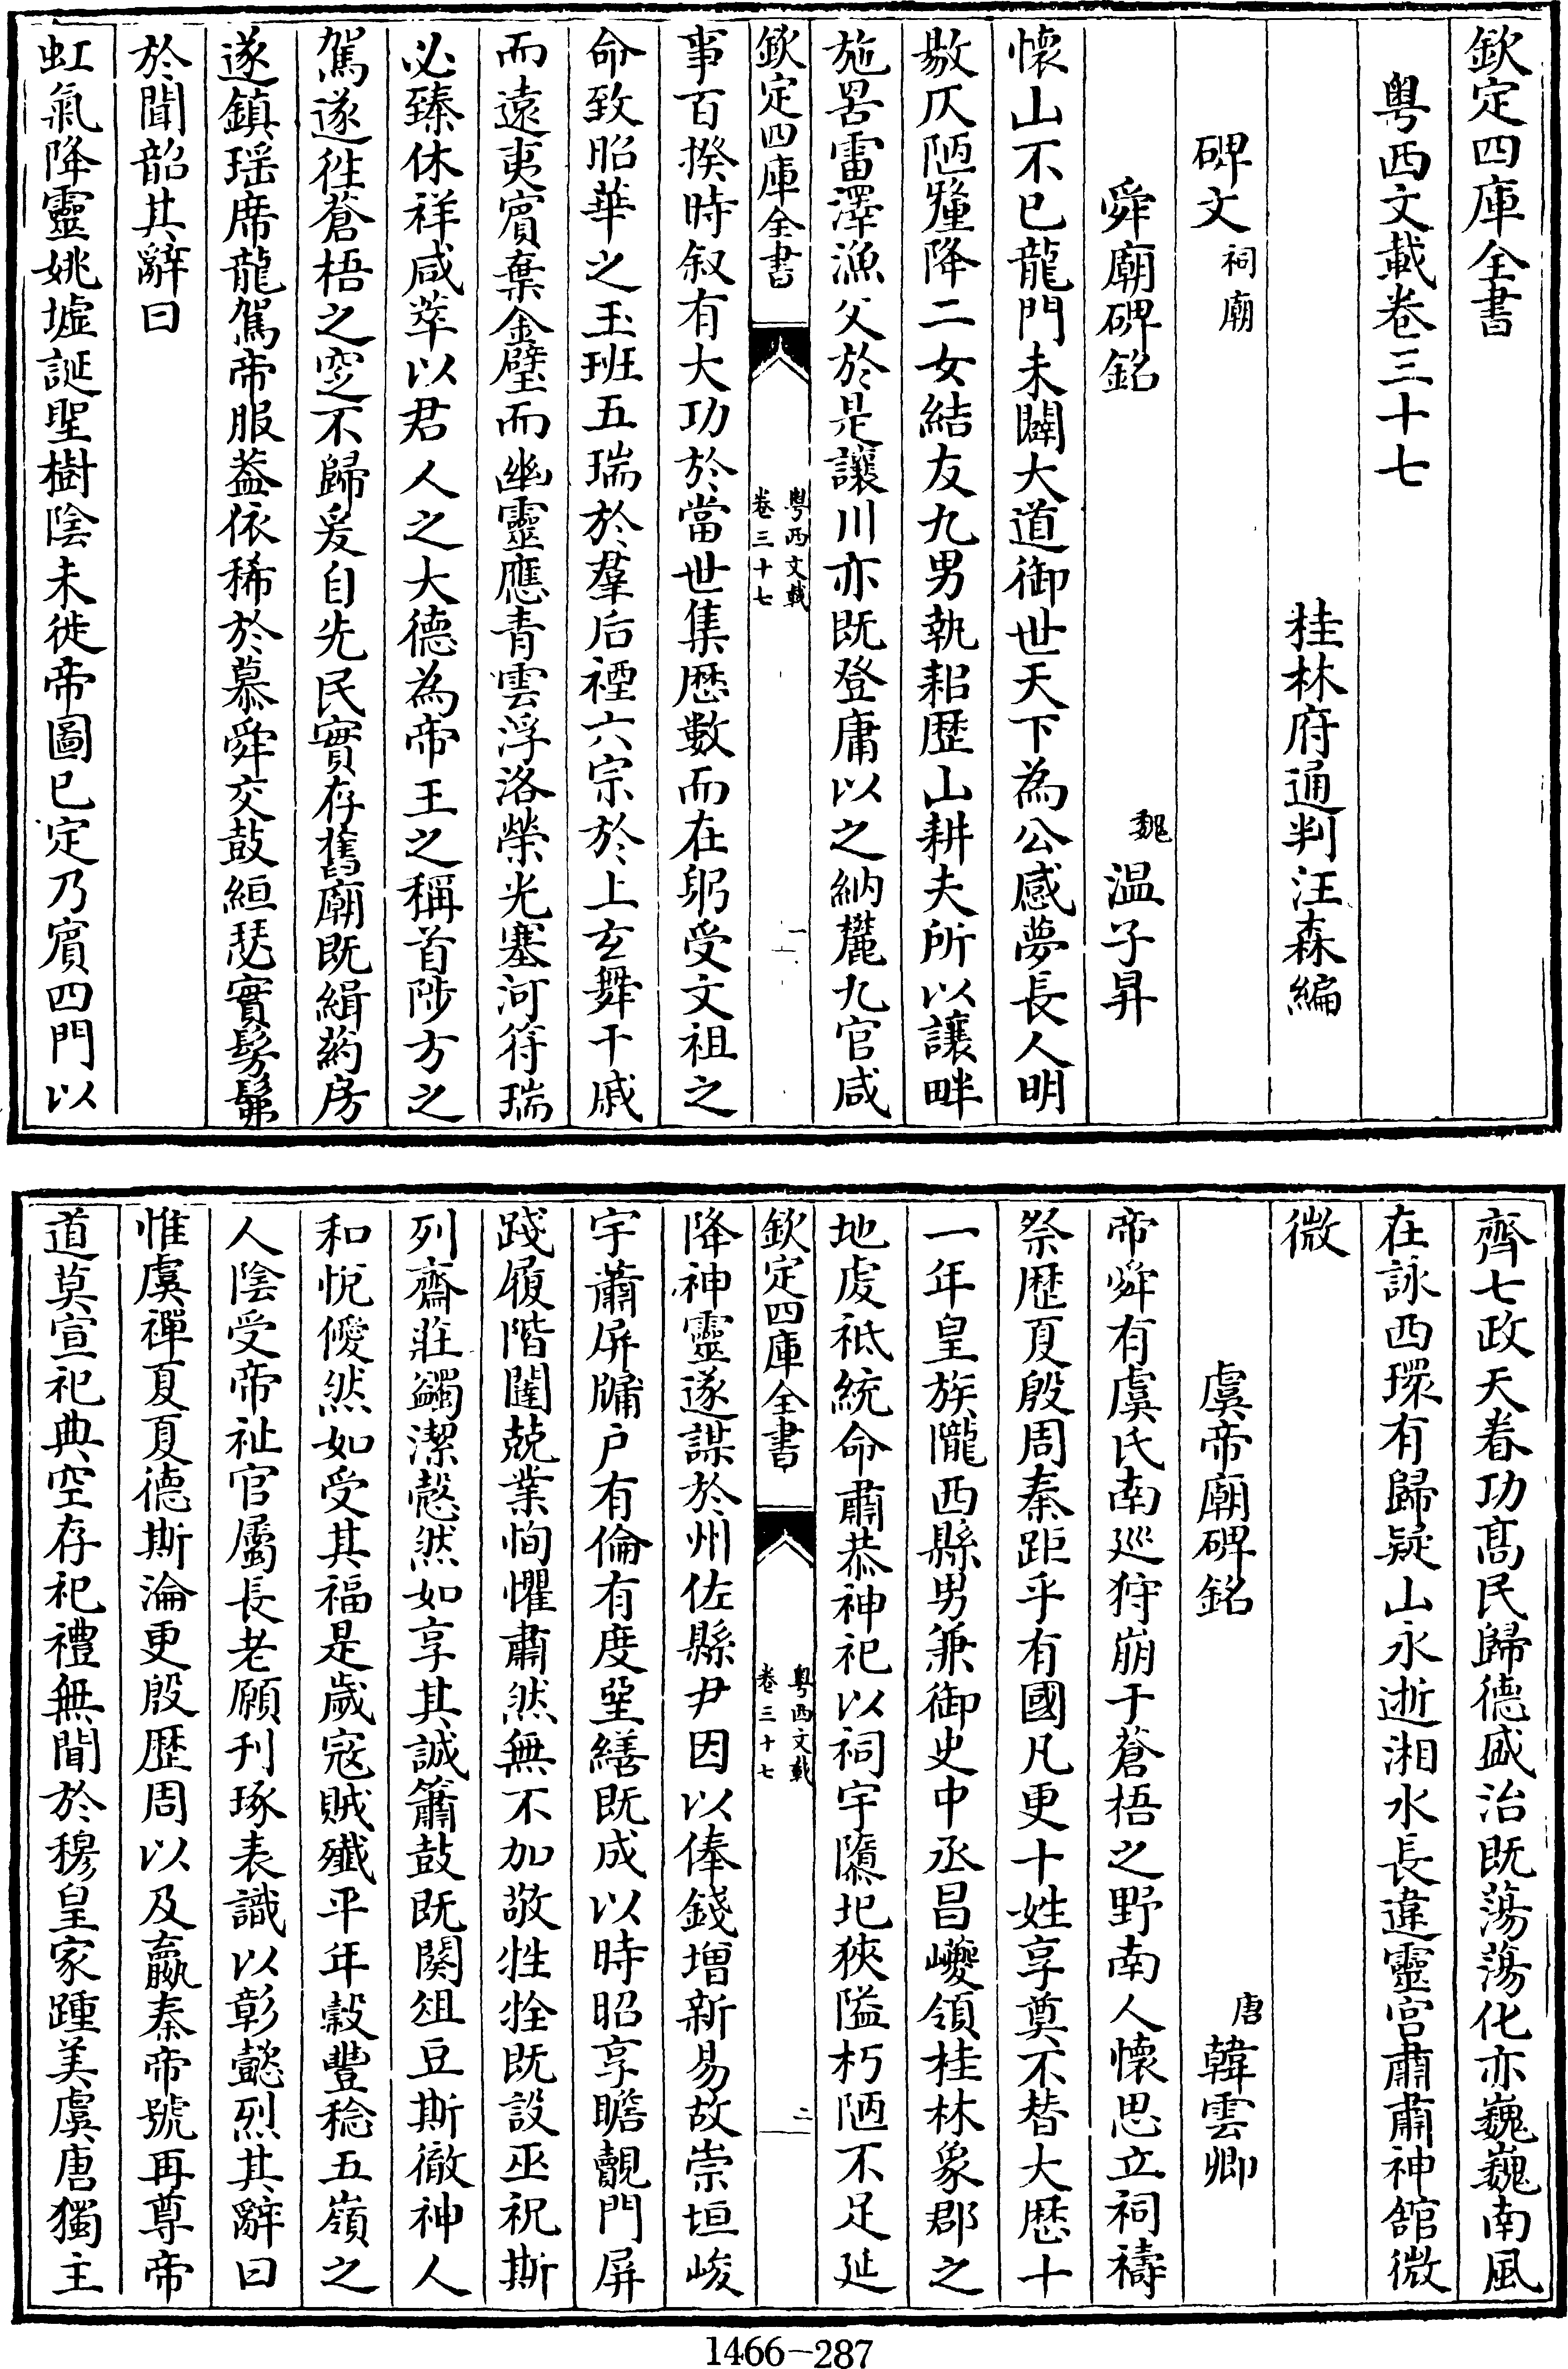 欽定四庫全書
粤西文載卷三十七
桂林府通判汪森編
碑文祠廟
舜廟碑銘
魏温子昇
懷山不已龍門未闢大道御世天下為公感夢長人明
敭仄陋釐降二女結友九男執耜歷山耕夫所以讓畔
施罟雷澤漁父於是讓川亦既登庸以之納麓九官咸
欽定四庫全書
粤西文載
卷三十七
一
事百揆時叙有大功於當世集歴數而在躬受文祖之
命致昭華之玉班五瑞於羣后禋六宗於上玄舞干戚
而遠夷賓棄金璧而幽靈應青雲浮洛榮光塞河符瑞
必臻休祥咸萃以君人之大德為帝王之稱首陟方之
駕遂徃蒼梧之窆不歸爰自先民實存舊廟既緝葯房
遂鎮瑶席龍駕帝服葢依稀於慕舜交鼓絙瑟實髣髴
於聞韶其辭曰
虹氣降靈姚墟誕聖樹陰未徙帝圖已定乃賓四門以
齊七政天眷功髙民歸德盛治既蕩蕩化亦巍巍南風
在詠西環有歸疑山永逝湘水長違靈宫肅肅神館微
微
虞帝廟碑銘
唐韓雲卿
帝舜有虞氏南巡狩崩于蒼梧之野南人懷思立祠禱
祭歷夏殷周秦距乎有國凡更十姓享奠不替大歷十
一年皇族隴西縣男兼御史中丞昌巙領桂林象郡之
地虔祗統命肅恭神祀以祠宇隳圯狹隘朽陋不足延
欽定四庫全書
粤西文載
卷三十七
二
降神靈遂謀於州佐縣尹因以俸錢增新易故崇垣峻
宇蕭屏牖户有倫有度堊繕既成以時昭享瞻覿門屏
踐履階闥兢業恂懼肅然無不加敬牲牷既設巫祝斯
列齋莊蠲潔慤然如享其誠簫鼓既闋俎豆斯徹神人
和悅僾然如受其福是歲寇賊殲平年穀豐稔五嶺之
人陰受帝祉官屬長老願刋琢表識以彰懿烈其辭曰
惟虞禪夏夏德斯淪更殷歷周以及嬴秦帝號再尊帝
道莫宣祀典空存祀禮無聞於穆皇家踵美虞唐獨主
1466-287